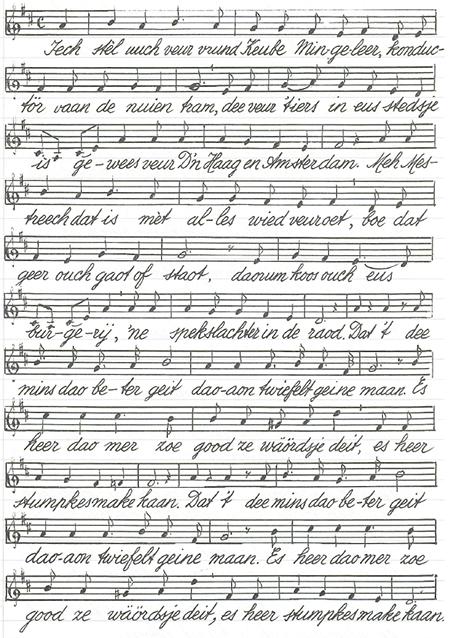 Iech stel uuch veur vrund Keube Min-ge-leer, konduc-
tör vaan de nuien tram, dee veur 't iers in eus stedsje
is ge-wees veur D'n Haag en Amsterdam. Meh Mes-
treech dat is mèt al-les wied veuroet, boe dat
geer ouch gaot of staot, daorum koos ouch eus
bür-ge-rij, 'ne spekslachter in de raod. Dat 't dee
mins dao be-ter geit dao-aon twiefelt geine maan. Es
heer dao mer zoe good ze wäördsje deit, es heer
stumpkes make kaan. Dat 't dee mins dao be-ter geit
dao-aon twiefelt geine maan. Es heer dao mer zoe
good ze wäördsje deit, es heer stumpkes make kaan.